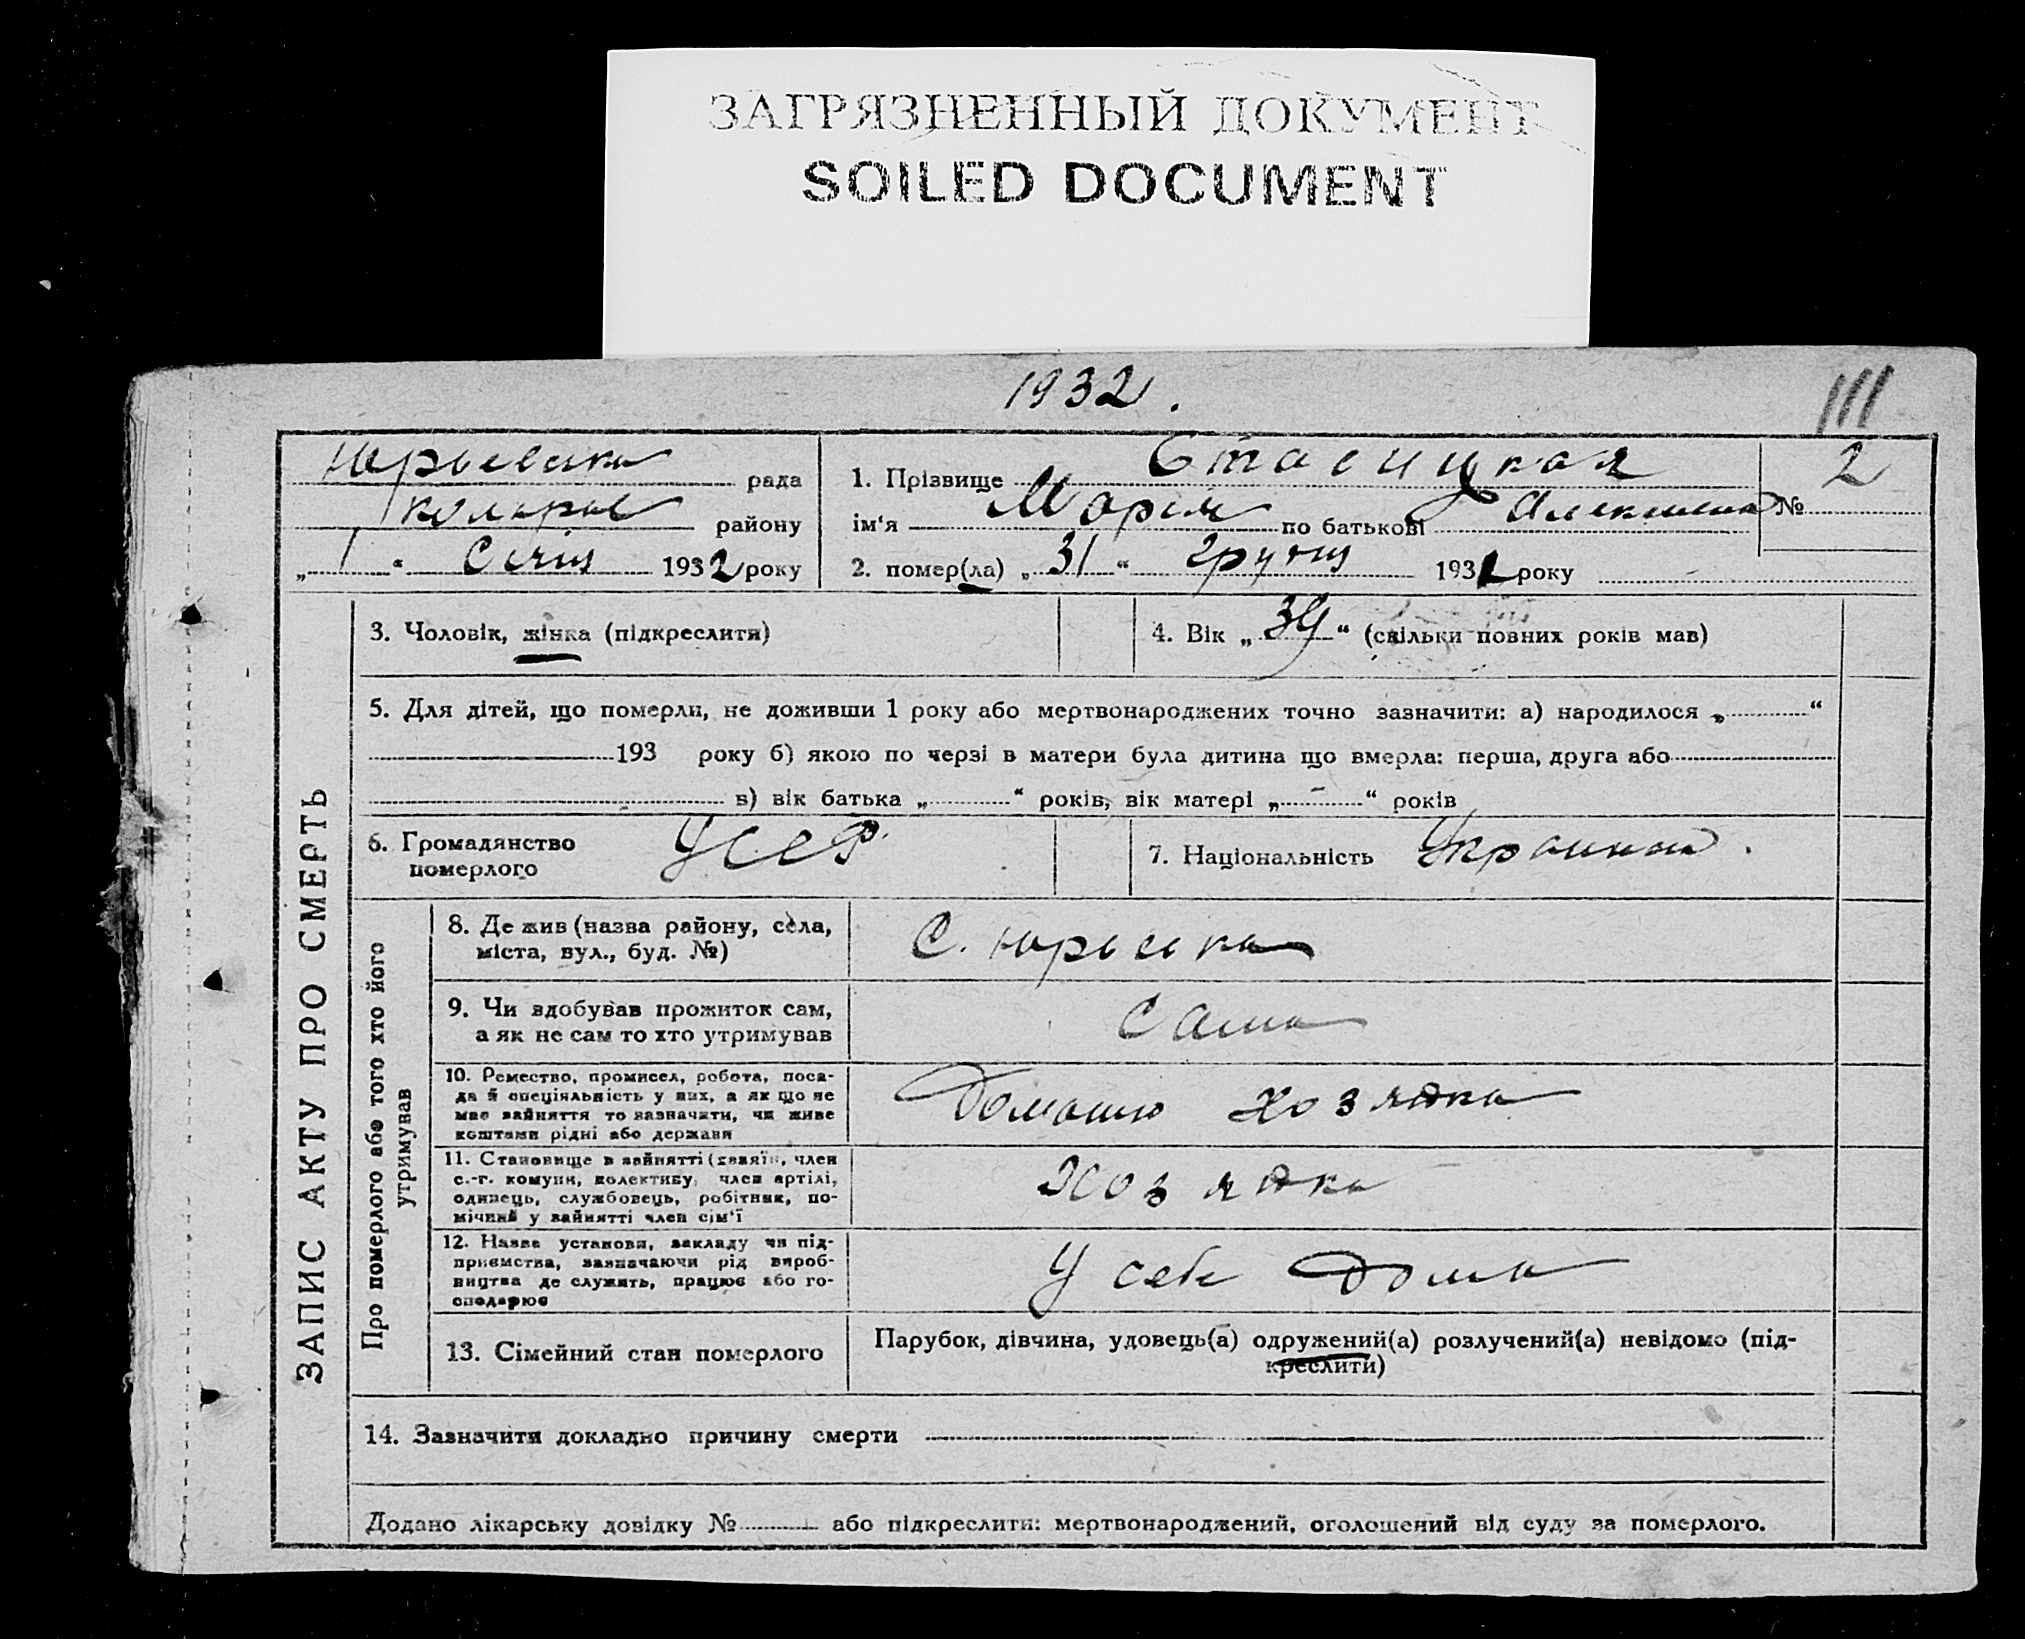 ЗАГРЯЗНЕННЫЙ ДОКУМЕНТ
SOILED DOCUMENT
1932.
111
Юрьевска рада
району
„ 1 “ Січня 1932 року
1. Прізвище Стасицкая
ім‘я Мария по батькові № 2
2. помер(ла) „ 31 “ грудня 1931 року
3. Чоловік, жінка (підкреслити)
4. Вік „ 39 “ (скільки повних років мав)
5. Для дітей, що померли, не доживши 1 року або мертвонароджених точно зазначити: а) народилося „ “
193 року б) якою по черзі в матери була дитина що вмерла: перша, друга або
в) вік батька „ “ років, вік матері „ - “ років
6. Громадянство
померлого
УССР.
7. Національність Украинка.
ЗАПИС АКТУ ПРО СМЕРТЬ
Про померлого або того хто його
утримував
8. Де жив (назва району, села,
міста, вул., буд. №)
С. Юрьевка
9. Чи вдобував прожиток сам,
а як не сам то хто утримував
Сама
10. Ремество, промисел, робота, поса-
да й спеціяльність у них, а як що не
має вайняття то зазначити, чи живе
коштами рідні або держави
Домашн хозядка
11. Становище в вайнятті (хазяїн, член
с.-г. комуни, колективу, член артілі,
одинець, службовець, робітник, по-
мічний у вайнятті член сім‘ї
Хозядка
12. Назва установи, вакладу чи під-
приємства, вазначаючи рід вироб-
ництва де служить, працює або го-
сподарює
У себе дома
13. Сімейний стан померлого
Парубок, дівчина, удовець(а) одружений(а) розлучений(а) невідомо (під-
креслити)
14. Зазначити докладно причину смерти
Додано лікарську довідку № або підкреслити: мертвонароджений, оголошений від суду за померлого.